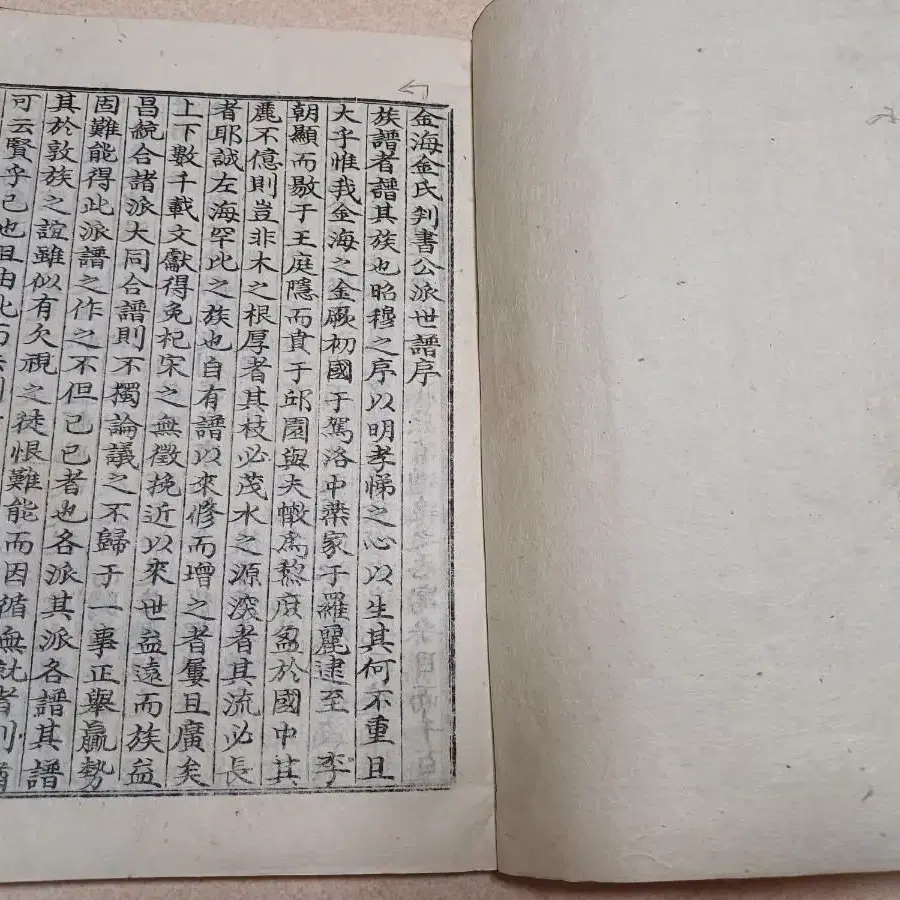 金海金氏判書公派世譜序
族譜者譜其族也昭穆之序以明孝悌之心以生其何不重且
大乎惟我金海之金厥初國于駕洛中葉家于羅麗逮至 李
朝顯而敭于王庭隱而賁于邱園與夫轍爲熬庶盈於國中其
麗不億則豈非木之根厚者其枝必茂水之源深者其流必長
者耶誠左海罕比之族也自有譜以來修而增之者屢且廣矣
上下數千載文獻得免杞宋之無徵挽近以來世益遠而族益
昌統合諸派大同合譜則不獨論議之不歸于一事正舉羸勢
固難能得此派譜之作之不但已已者也各派其派各譜其譜
其於敦族之誼雖似有欠視之徒恨難能而因循無就者則猶
可云賢乎已也且由此而